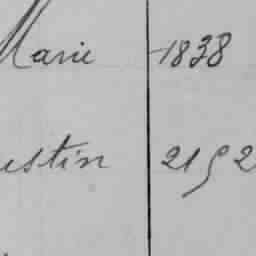 Marie 1838
ustin 21 9 2